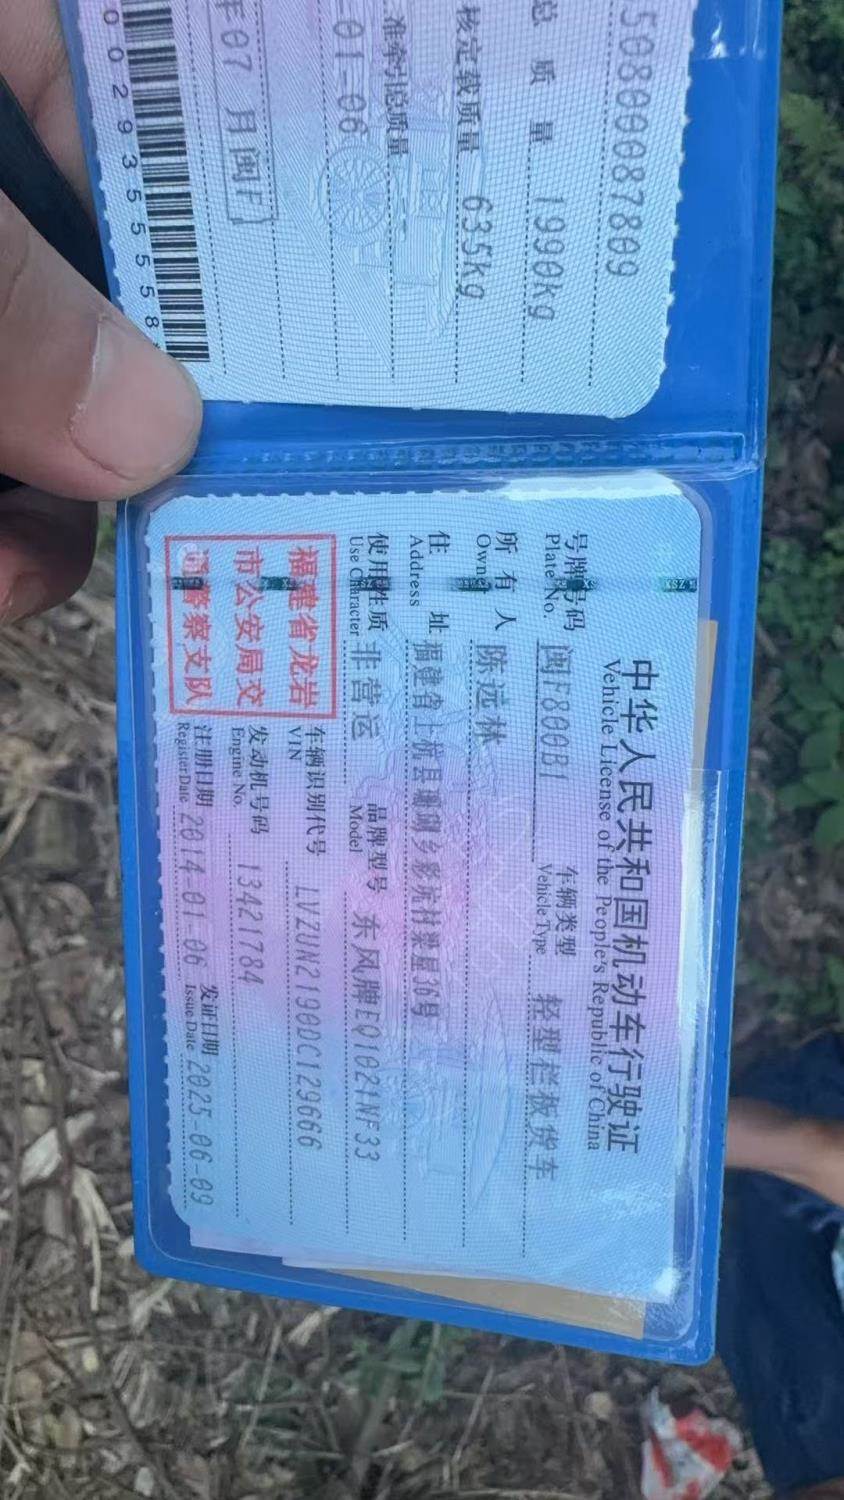 508000087809
总质量 1990kg
核定载质量 635kg
准牵引总质量 --
-01-06
年07月闽F]
0029355558
中华人民共和国机动车行驶证
Vehicle License of the People's Republic of China
号牌号码 闽F800B1 车辆类型 轻型栏板货车
Plate No. Vehicle Type
所有人 陈远林
Own
住址 福建省上杭县珊瑚乡彩坑村梁屋36号
Address
使用性质 非营运 品牌型号 东风牌EQ1021NF33
Use Character Model
福建省龙岩
市公安局交
通警察支队
车辆识别代号 LVZUN2190DC129666
VIN
发动机号码 13421784
Engine No.
注册日期 2014-01-06 发证日期 2025-06-09
Register Date Issue Date